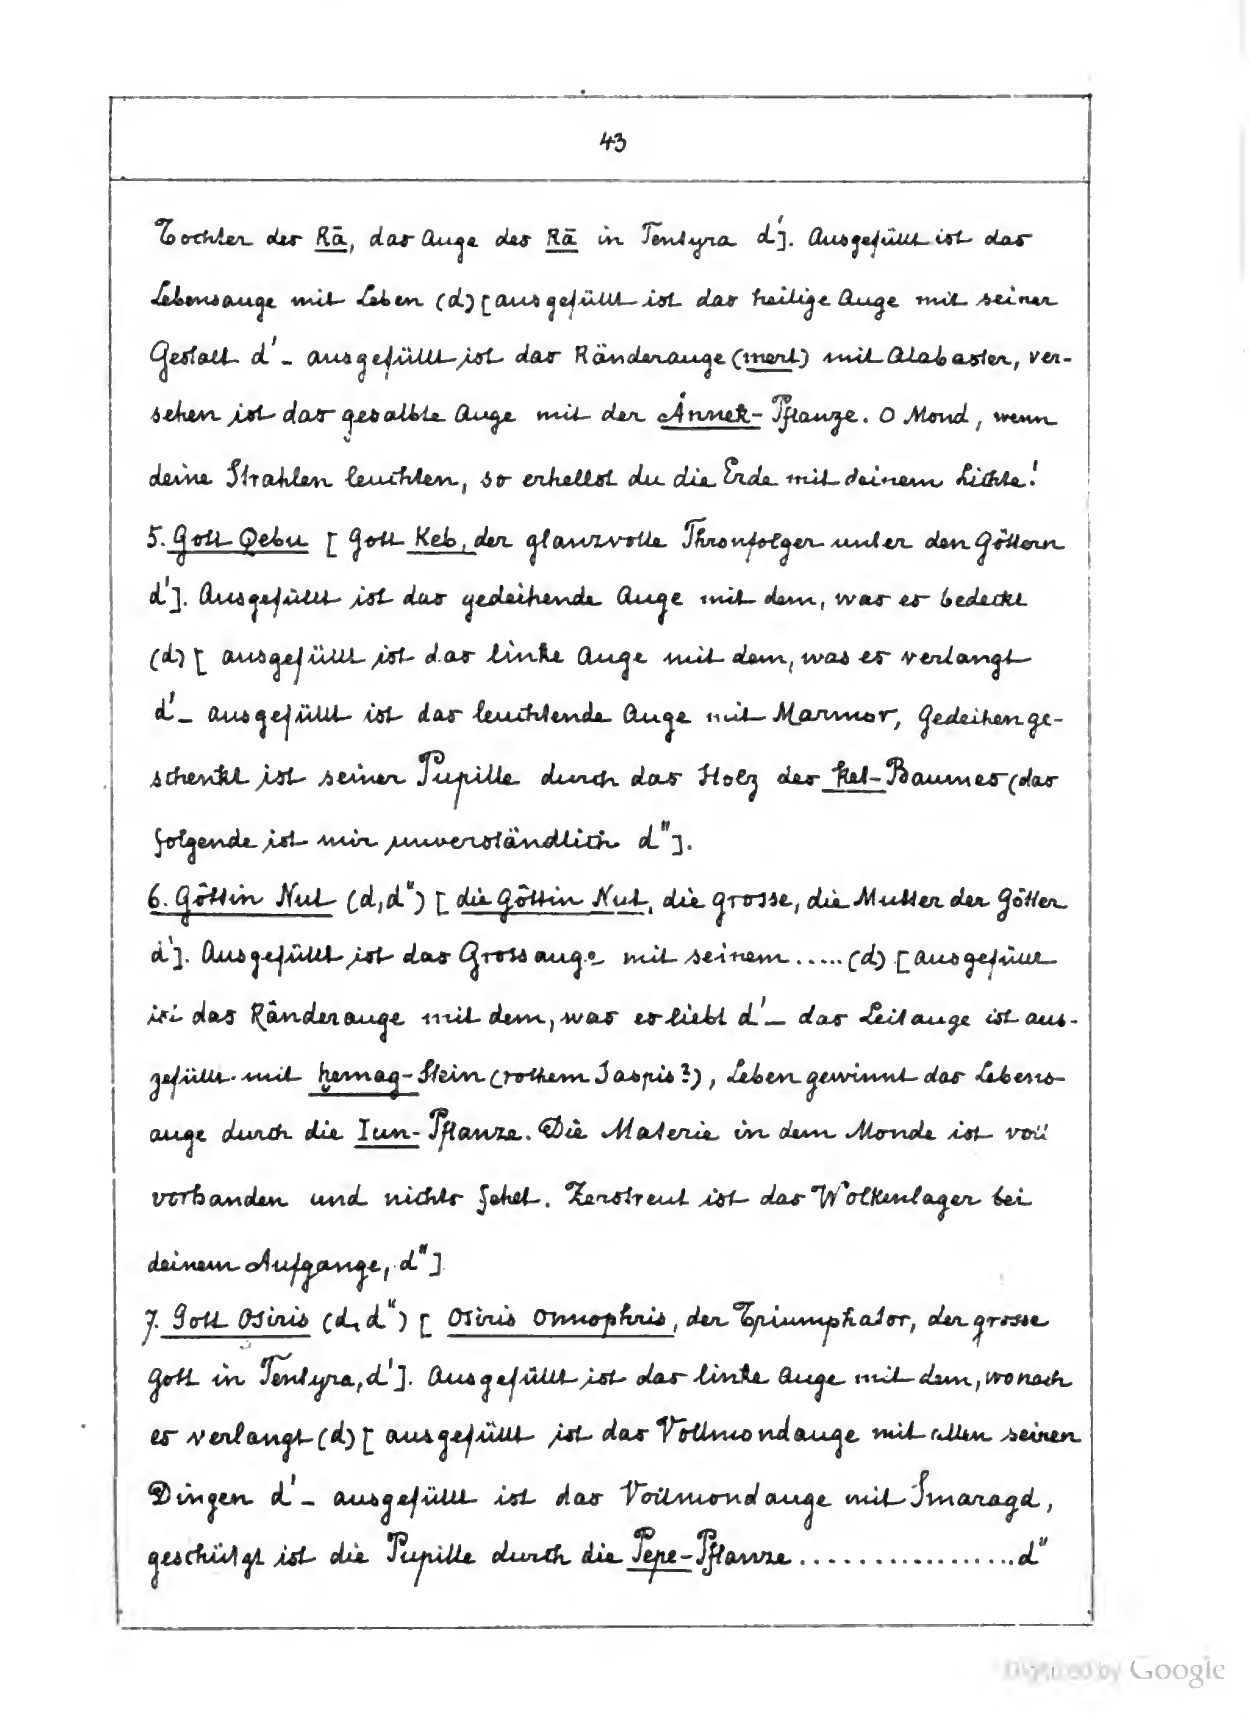 43
Tochter des Rā, das Auge des Rā in Tentyra d']. Ausgefüllt ist das
Lebensauge mit Leben (d) [ausgefüllt ist das heilige Auge mit seiner
Gestalt d' – ausgefüllt ist das Ränderauge (mert) mit Alabaster, ver-
sehen ist das gesalbte Auge mit der Ȧnnek-Pflanze. O Mond, wenn
deine Strahlen leuchten, so erhellst du die Erde mit deinem Lichte!
5. Gott Qebu [Gott Keb, der glanzvolle Thronfolger unter den Göttern
d']. Ausgefüllt ist das gedeihende Auge mit dem, was es bedeckt
(d) [ausgefüllt ist das linke Auge mit dem, was es verlangt
d' – ausgefüllt ist das leuchtende Auge mit Marmor, Gedeihen ge-
schenkt ist seiner Pupille durch das Holz des ket-Baumes (das
folgende ist mir unverständlich d"].
6. Göttin Nut (d, d") [die Göttin Nut, die grosse, die Mutter der Götter
d']. Ausgefüllt ist das Grossauge mit seinem ..... (d) [ausgefüllt
ist das Ränderauge mit dem, was es liebt d' – das Leitauge ist aus-
gefüllt mit ḫemag-Stein (rothem Jaspis?), Leben gewinnt das Lebens-
auge durch die Iun-Pflanze. Die Materie in dem Monde ist voll
vorhanden und nichts fehlt. Zerstreut ist das Wolkenlager bei
deinem Aufgange, d"]
7. Gott Osiris (d, d") [Osiris Onnophris, der Triumphator, der grosse
Gott in Tentyra, d']. Ausgefüllt ist das linke Auge mit dem, wonach
es verlangt (d) [ausgefüllt ist das Vollmondauge mit allen seinen
Dingen d' – ausgefüllt ist das Vollmondauge mit Smaragd,
geschützt ist die Pupille durch die Pepe-Pflanze .................. d"
Digitized by Google